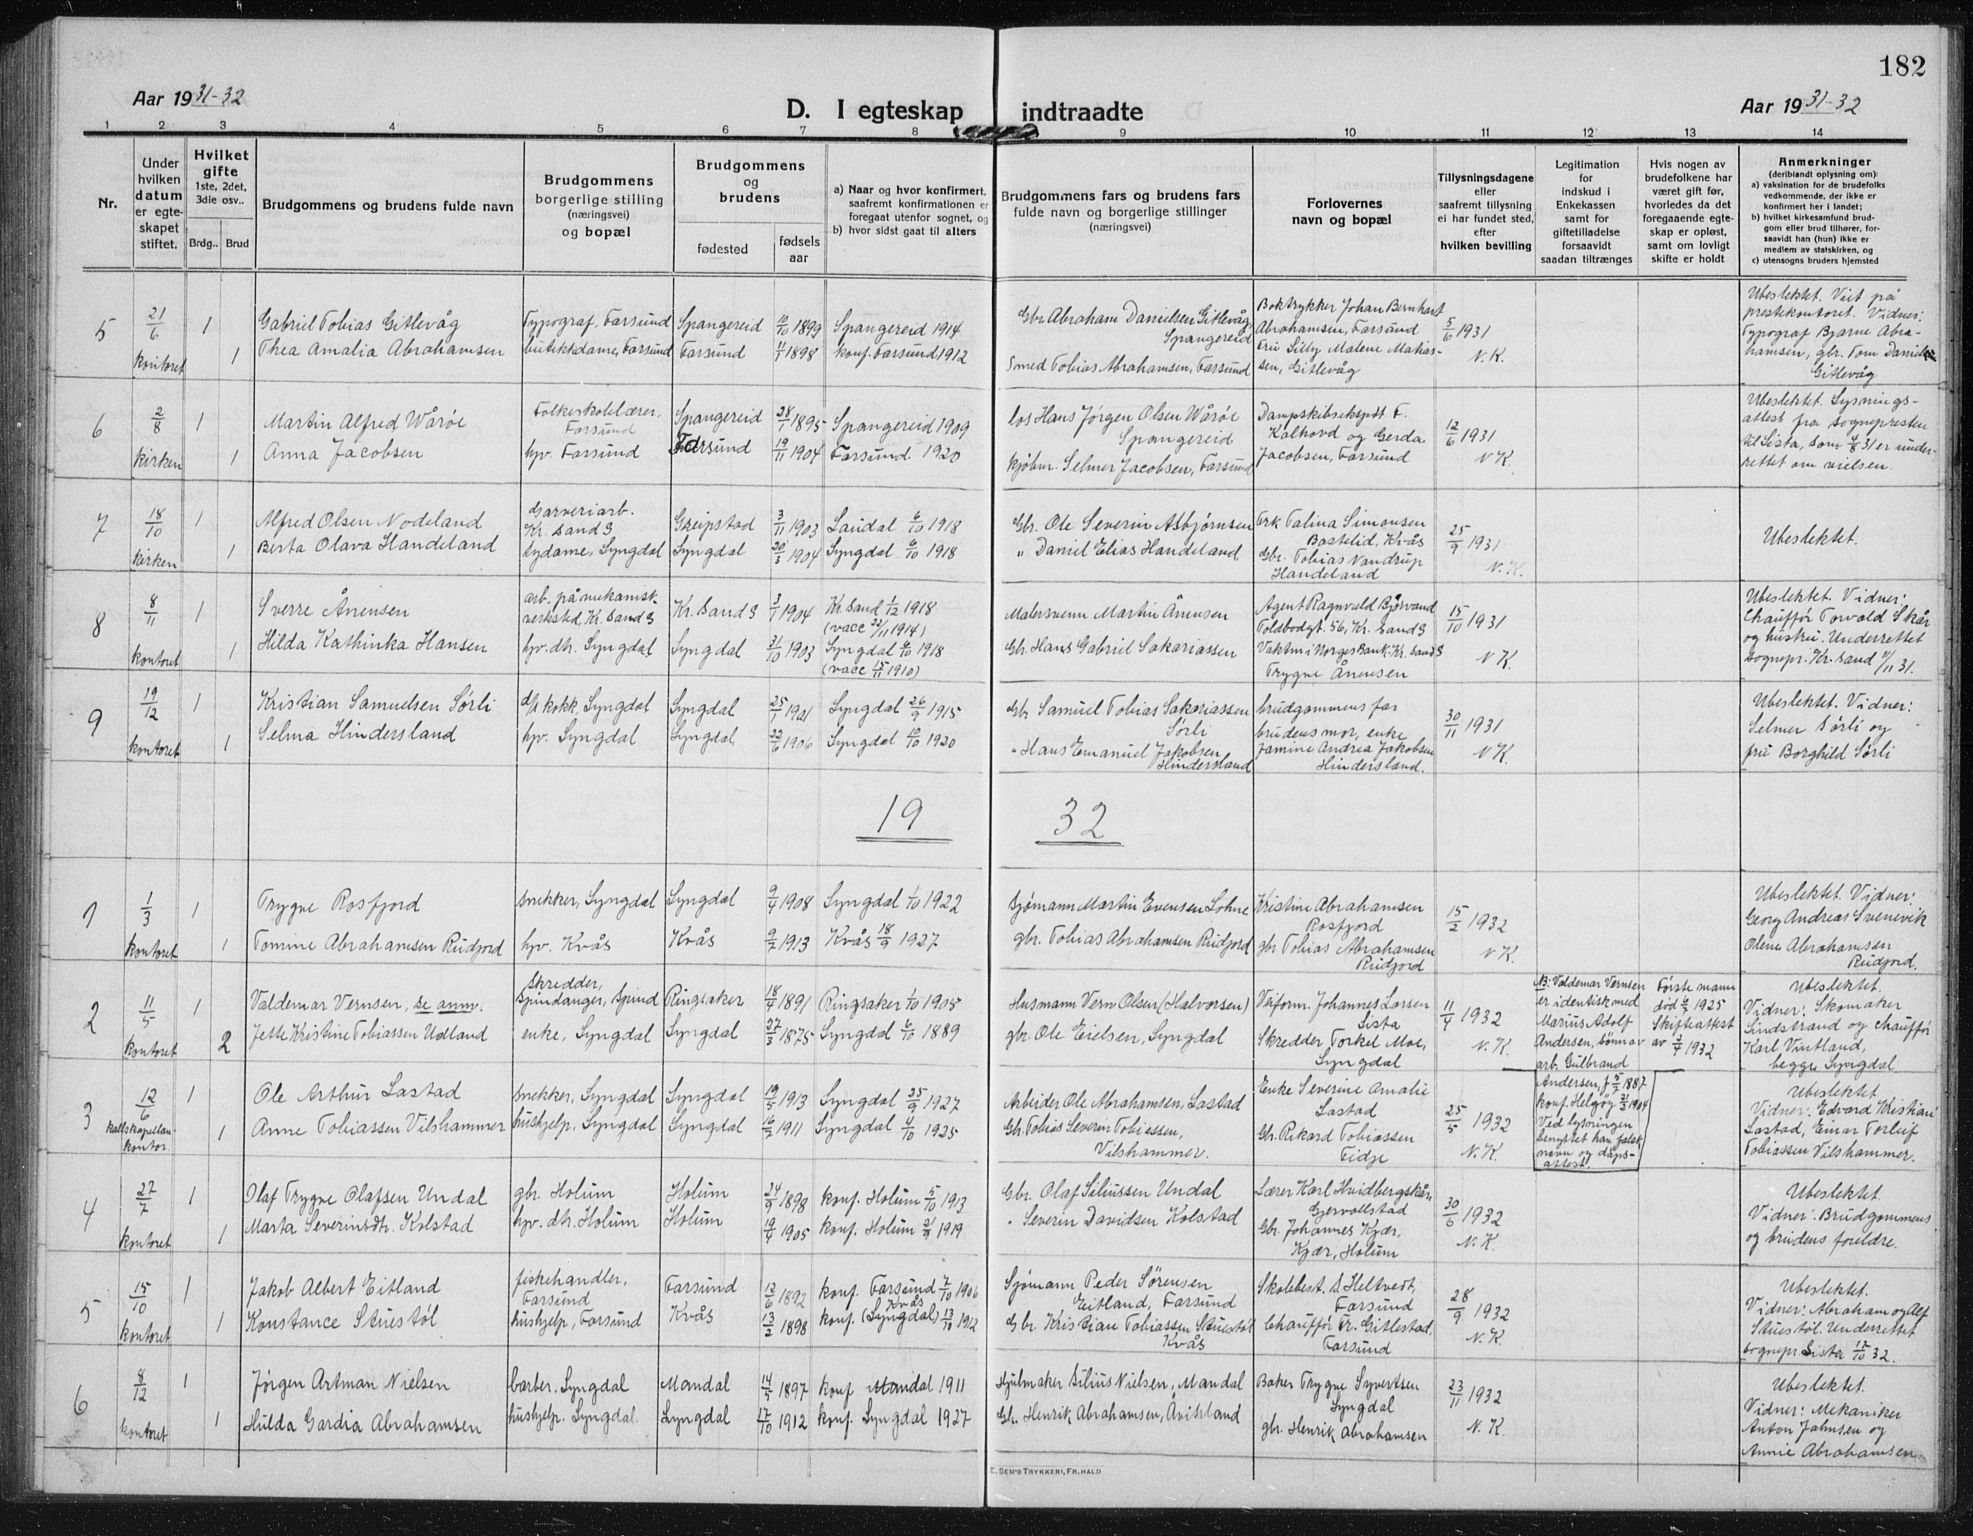 182
Aar 1931-32
D. I egteskap indtraadte
Aar 1931-32
1 2 3 4 5 6 7 8 9 10 11 12 13 14
Nr.
Under hvilken datum er egteskapet stiftet.
Hvilket gifte 1ste, 2det, 3die osv..
Brdg.. Brud
Brudgommens og brudens fulde navn
Brudgommens borgerlige stilling (næringsvei) og bopæl
Brudgommens og brudens
fødested
fødsels aar
a) Naar og hvor konfirmert, saafremt konfirmationen er foregaat utenfor sognet, og
b) hvor sidst gaat til alters
Brudgommens fars og brudens fars fulde navn og borgerlige stillinger (næringsvei)
Forlovernes navn og bopæl
Tillysningsdagene eller saafremt tillysning ei har fundet sted, efter hvilken bevilling
Legitimation for indskud i Enkekassen samt for giftetilladelse forsaavidt saadan tiltrænges
Hvis nogen av brudefolkene har været gift før, hvorledes da det foregaaende egteskap er opløst, samt om lovligt skifte er holdt
Anmerkninger (deriblandt oplysning om):
a) vaksination for de brudefolks vedkommende, der ikke er konfirmert her i landet;
b) hvilket kirkesamfund brudgom eller brud tilhører, forsaavidt han (hun) ikke er medlem av statskirken, og
c) utensogns bruders hjemsted
5 21/6 kontoret 1 1
Gabriel Tobias Gitlevåg
Thea Amalia Abrahamsen
Typograf, Farsund
butikkdame, Farsund
Spangereid 10/10 1899 Spangereid 1914
Farsund 1898 konf. Farsund 1912
Gbr. Abraham Danielsen Gitlevåg
Spangereid
Smed Tobias Abrahamsen, Farsund
Boktrykker Johan Bernhart
Abrahamsen, Farsund
Fru Lilly Malene Mathias-
sen, Gitlevåg
5/6 1931
N.K.
Ubeslektet. Viet på
prestekontoret. Vidner:
Typograf Bjarne Abra-
hamsen, gbr. Tom Daniel
Gitlevåg
6 2/8 kirken 1 1
Martin Alfred Wårøe
Anna Jacobsen
Folkeskolelærer.
Farsund
hjv. Farsund
Spangereid 28/1 1895 Spangereid 1909
Farsund 19/11 1904 Farsund 1920
los Hans Jørgen Olsen Wårøe
Spangereid
kjøbm. Selmer Jacobsen, Farsund
Dampskibsekspdt F.
Kalhovd og Gerda
Jacobsen, Farsund
12/6 1931
N K.
Ubeslektet. Lysnings-
attest fra sognepresten
til Lista, som 4/8 31 er under-
rettet om vielsen.
7 18/10 kirken 1 1
Alfred Olsen Nodeland
Berta Olava Handeland
Garveriarb.
Kr. sand S
sydame, Lyngdal
Greipstad 3/11 1903 Laudal 6/10 1918
Lyngdal 20/3 1904 Lyngdal 6/10 1918
Gbr. Ole Severin Asbjørnsen
" Daniel Elias Handeland
Frk Talina Simonsen
Bastelid, Kvås
Gbr. Tobias Vandrup
Handeland
25/9 1931
N. K.
Ubeslektet.
8 8/11 kontoret 1 1
Sverre Ånensen
Hilda Kathinka Hansen
arb. på mekanisk.
verksted, Kr. sand S
hjv. dtr. Lyngdal
Kr. sand S 3/1 1904 Kr. sand 1/12 1918
(vacc 1914)
Lyngdal 31/10 1903 Lyngdal 6/10 1918
(vacc 15/11 1910)
Malersvenn Martin Ånensen
Gbr. Hans Gabriel Sakariassen
Agent Ragnvald Bjørvand
Toldbodgt. 56, Kr. sand S
Vaktm i Norges Bank. Kr. sand S
Trygve Ånensen
15/10 1931
N K.
Ubeslektet. Vidner:
Chauffør Torvald Skår
og hustru. Underrettet
sognepr. Kr. sand 11/11 31.
9 19/12 kontoret 1 1
Kristian Samuelsen Sørli
Selma Hindersland
d/s kokk Lyngdal
hjv. Lyngdal
Lyngdal 25/1 1901 Lyngdal 26/9 1915
Lyngdal 22/6 1906 Lyngdal 10/10 1920
Gbr Samuel Tobias Sakariassen
Sørli
" Hans Emanuel Jakobsen
Hindersland
brudgommens far
brudens mor, enke
Jamine Andrea Jakobsen
Hindersland.
30/11 1931
N K.
Ubeslektet. Vidner:
Selmer Sørli og
fru Borghild Sørli
19 32
1 1/3 kontoret 1 1
Trygve Rosfjord
Tomine Abrahamsen Rudjord
snekker, Lyngdal
hjv. Kvås
Lyngdal 9/4 1908 Lyngdal 1/10 1922
Kvås 9/7 1913 Kvås 18/9 1927
Sjømann Martin Evensen Lohne
gbr. Tobias Abrahamsen Rudjord
Kristine Abrahamsen
Rosfjord
gbr Tobias Abrahamsen
Rudjord
15/2 1932
N K.
Ubeslektet. Vidner:
Georg Andreas Svenevik
Olene Abrahamsen
Rudjord.
2 11/5 kontoret 1 2
Valdemar Vernsen, se anm.
Jette Kristine Tobiassen Udland
Skredder,
Spindanger, Spind
enke, Lyngdal
Ringsaker 18/4 1891 Ringsaker 1/10 1905
Lyngdal 27/3 1875 Lyngdal 6/10 1889
Husmann Vern Olsen (Halvorsen)
gbr. Ole Eielsen, Lyngdal
Veiform. Johannes Larsen
Lista
Skredder Torkel Moe,
Lyngdal
11/4 1932
N. K.
NB: Valdemar Vernsen
er identisk med
Marius Adolf
Andersen, sønn av
arb. Gulbrand
Andersen, f. 5/2 1887
konf. Helgøy 1904
Ved lysningen
benyttet han falsk
navn og dåps-
attest!
Første mann
død 1925
Skifteattest
av 1932
Ubeslektet.
Vidner: Skomaker
Lindstrand og chauffør
Karl Vintland,
begge Lyngdal
3 12/6 kallskapellan-
kontor. 1 1
Ole Arthur Lastad
Anne Tobiassen Vilshammer
snekker, Lyngdal
hushjelp, Lyngdal
Lyngdal 19/5 1913 Lyngdal 25/9 1927
Lyngdal 16/2 1911 Lyngdal 4/10 1925
Arbeider Ole Abrahamsen, Lastad
Gbr. Tobias Severin Tobiassen,
Vilshammer.
Enke Severine Amalie
Lastad
Gbr. Rikard Tobiassen
Fidje
25/5 1932
N. K.
Ubeslektet.
Vidner: Edvard Kristian
Lastad, Einar Torleif
Tobiassen Vilshammer.
4 27/7 kontoret 1 1
Olaf Trygve Olafsen Undal
Marta Severinsdtr. Kolstad
gbr. Holum
hjv. dtr. Holum
Holum 24/9 1898 konf. Holum 5/10 1913
Holum 19/4 1905 konf. Holum 1919
Gbr. Olaf Seliussen Undal
" Severin Davidsen Kolstad
Lærer Karl Hvidbergskår
Gjervollstad
Gbr. Johannes Kjær,
Kjær, Holum
30/6 1932
N. K.
Ubeslektet.
Vidner: Brudgommens
og brudens foreldre.
5 15/10 kontoret 1 1
Jakob Albert Eitland
Konstance Stuestøl
fiskehandler,
Farsund
hushjelp, Farsund
Farsund 12/6 1892 konf. Farsund 7/10 1906
Kvås 13/2 1898 konf. Kvås (Lyngdal) 13/10 1912
Sjømann Peder Sørensen
Eitland, Farsund
Gbr. Kristian Tobiassen Stuestøl
Kvås
Skolebest. S. Heltvedt,
Farsund
Chauffør Fr. Gitlestad,
Farsund
28/9 1932
N. K.
Ubeslektet.
Vidner: Abraham og Alf
Stuestøl. Underrettet
sognepr. Lista 15/10 32.
6 8/12 kontoret 1 1
Jørgen Artman Nielsen
Hulda Gardia Abrahamsen
barber, Lyngdal
hushjelp. Lyngdal
Mandal 14/5 1897 konf Mandal 1911
Lyngdal 17/10 1912 konf. Lyngdal 1927
Hjulmaker Silius Nielsen, Mandal
Gbr. Henrik Abrahamsen, Avitsland
Baker Trygve Syvertsen
Lyngdal
gbr. Henrik Abrahamsen
23/11 1932
N. K.
Ubeslektet.
Vidner: Mekaniker
Anton Jahnsen og
Annie Abrahamsen
E. SEM'S TRYKKERI, FR.HALD